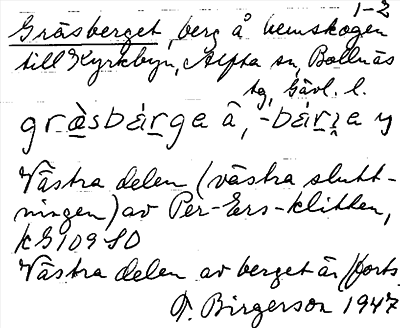 1-2
Gräsberget, berg å hemskogen
till Kyrkbyn, Alfta sn, Bollnäs
tg, Gävl. l.
gràsbárga â, -bárza y
Västra delen (västra slutt-
ningen) av Per-Ers-klitten,
kG109 SO
Västra delen av berget är (forts.
T. Birgerson 1947